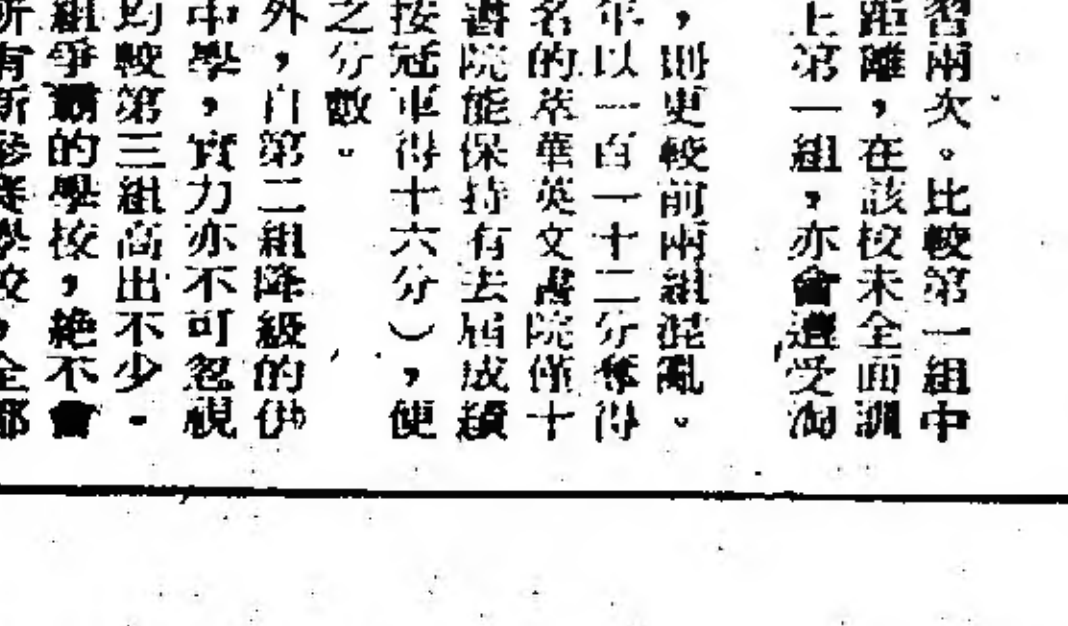 習兩次。比較第一組中
距離，在該校未全面訓
上第一組，亦會遭受淘
，則更較前兩組混亂。
年以一百一十二分奪得
名的萃華英文書院僅十
書院能保持有去屆成績
按冠軍得十六分），便
之分數。
外，自第二組降級的供
中學，實力亦不可忽視
均較第三組高出不少。
組爭霸的學校，絕不會
所有新參賽學校，全都